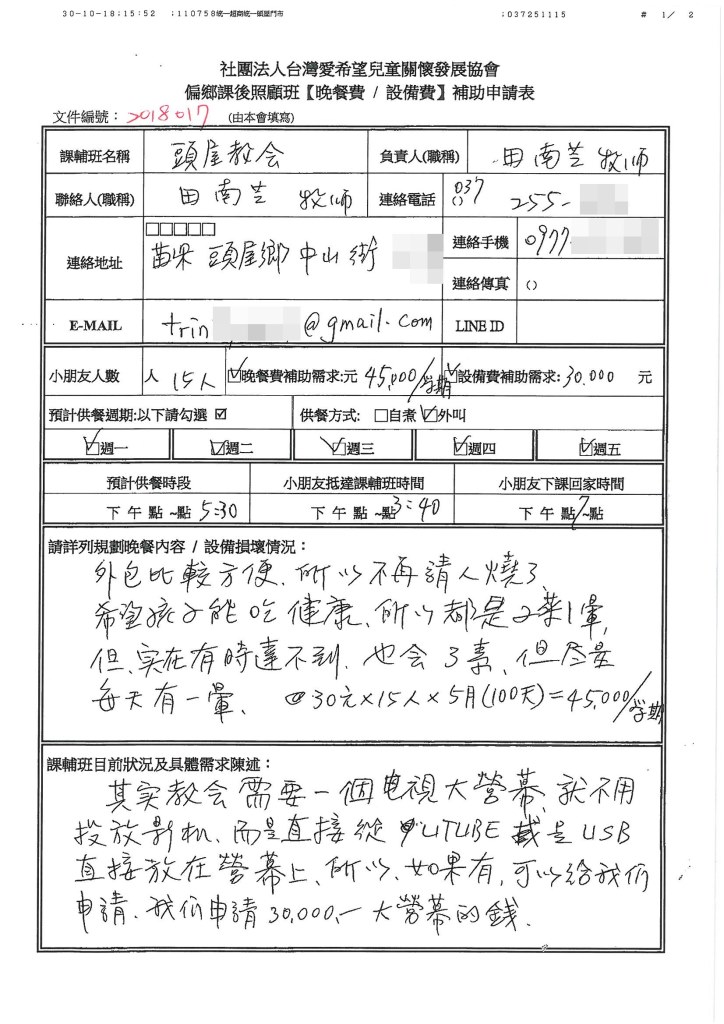 30-10-18;15:52 ;110758統一超商統一頭屋門市 ;037251115 # 1/ 2
社團法人台灣愛希望兒童關懷發展協會
偏鄉課後照顧班【晚餐費 / 設備費】補助申請表
文件編號：2018017 (由本會填寫)
課輔班名稱 頭屋教会 負責人(職稱) 田南芝 牧师
聯絡人(職稱) 田南芝 牧师 連絡電話 (037) 255-
連絡地址 □□□□□ 苗栗 頭屋鄉 中山街 連絡手機 0977
連絡傳真 ()
E-MAIL trin @gmail.com LINE ID
小朋友人數 人 15人 ☑晚餐費補助需求:元 45,000/学期 ☑設備費補助需求: 30.000 元
預計供餐週期:以下請勾選 ☑ 供餐方式: □自煮 ☑外叫
☑週一 ☑週二 ☑週三 ☑週四 ☑週五
預計供餐時段 小朋友抵達課輔班時間 小朋友下課回家時間
下午 點~點 5:30 下午 點~點 3:40 下午 點7~點
請詳列規劃晚餐內容 / 設備損壞情況：
外包比較方便、所以不再請人燒了
希望孩子能吃健康、所以都是2菜1暈,
但,实在有時達不到. 也会3素、但尽量
每天有一暈、 30元×15人×5月(100天)=45,000/学期
課輔班目前狀況及具體需求陳述：
其实教会需要一個电視大營幕、就不用
投放影机、而是直接從 YUTUBE 或是 USB
直接放在營幕上、所以、如果有,可以給我们
申請、我们申請30,000,一大營幕的錢.